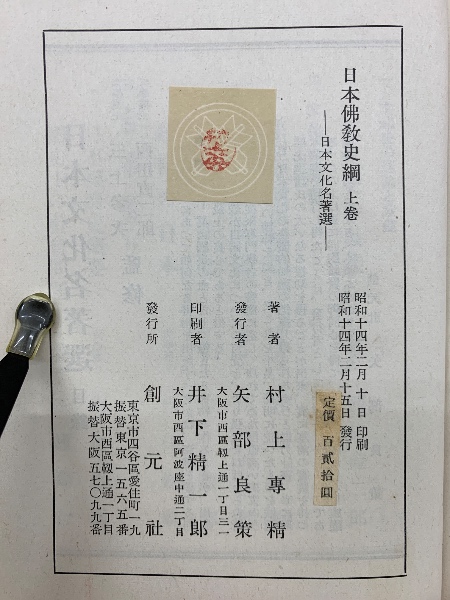 日本佛敎史綱 上卷
―日本文化名著選―
昭和十四年二月十日 印刷
昭和十四年二月十五日 發行
定價 百貳拾圓
著者 村上專精
發行者 矢部良策
大阪市西區靱上通一丁目三一
印刷者 井下精一郎
大阪市西區阿波座中通二丁目
發行所 創元社
東京市四谷區愛住町一九
振替東京一五六五番
大阪市西區靱上通一丁目
振替大阪五七〇九九番